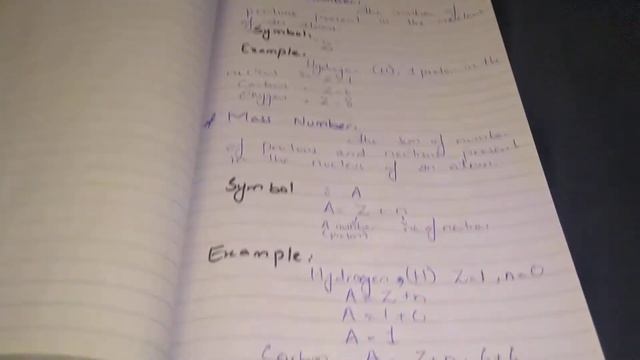 Number.
protons present in the nucleus
of an atom.
Symbol: Z
Example.
Hydrogen (H), 1 proton in the
Z=1
Carbon = Z=6
Oxygen = Z=8
Mass Number.
The sum of number
of protons and neutrons present
in the nucleus of an atom.
Symbol : A
A = Z + n
no of neutron
Example.
Hydrogen, (H) Z=1, n=0
A = Z+n
A = 1+0
A = 1
Carbon A = Z+n